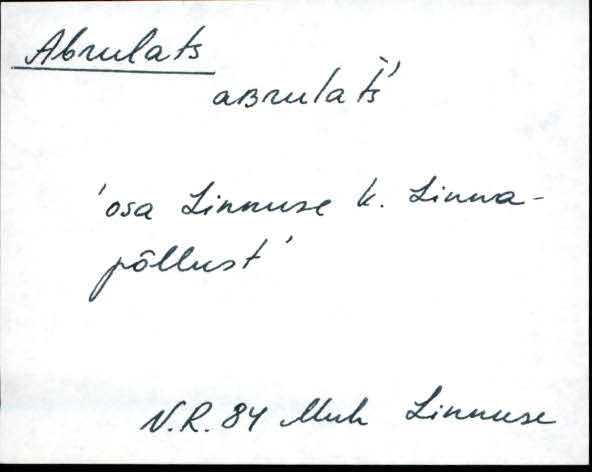 Abrulats
aʙrulat̆š́
'osa Linnuse k. Linna-
põllust'
N.R. 84 Muh Linnuse